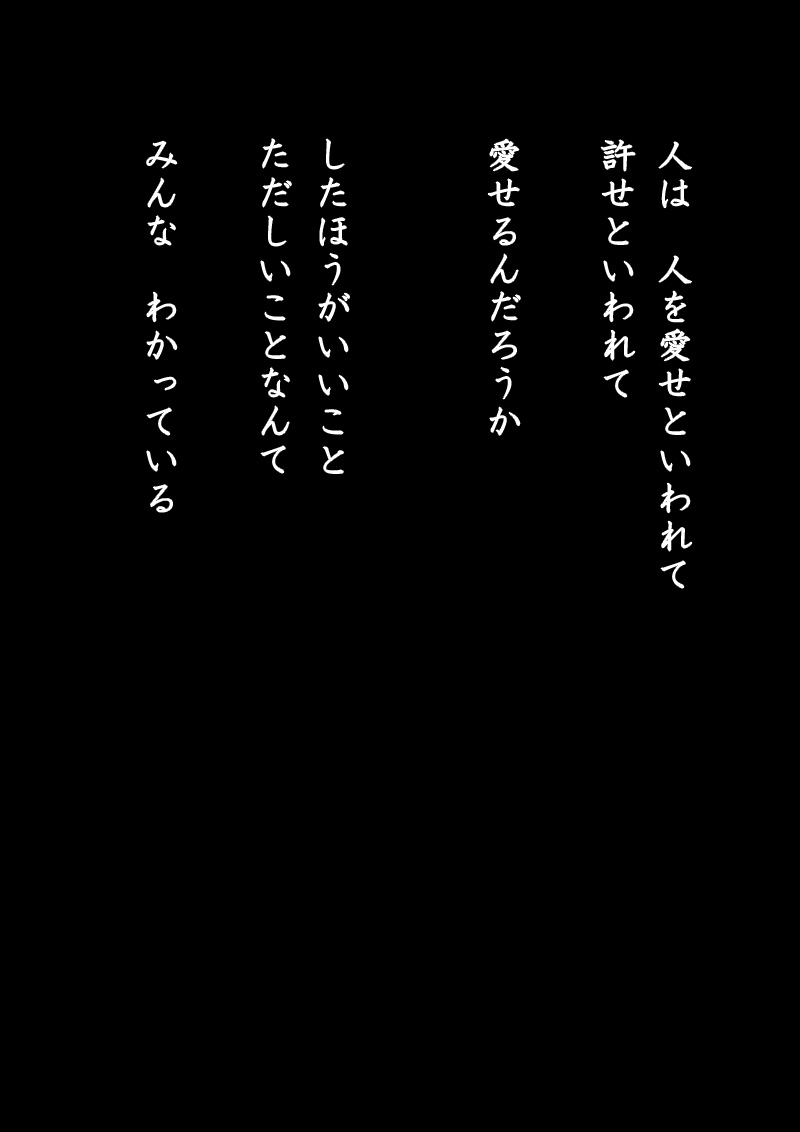 人は　人を愛せといわれて
許せといわれて
愛せるんだろうか
したほうがいいこと
ただしいことなんて
みんな　わかっている